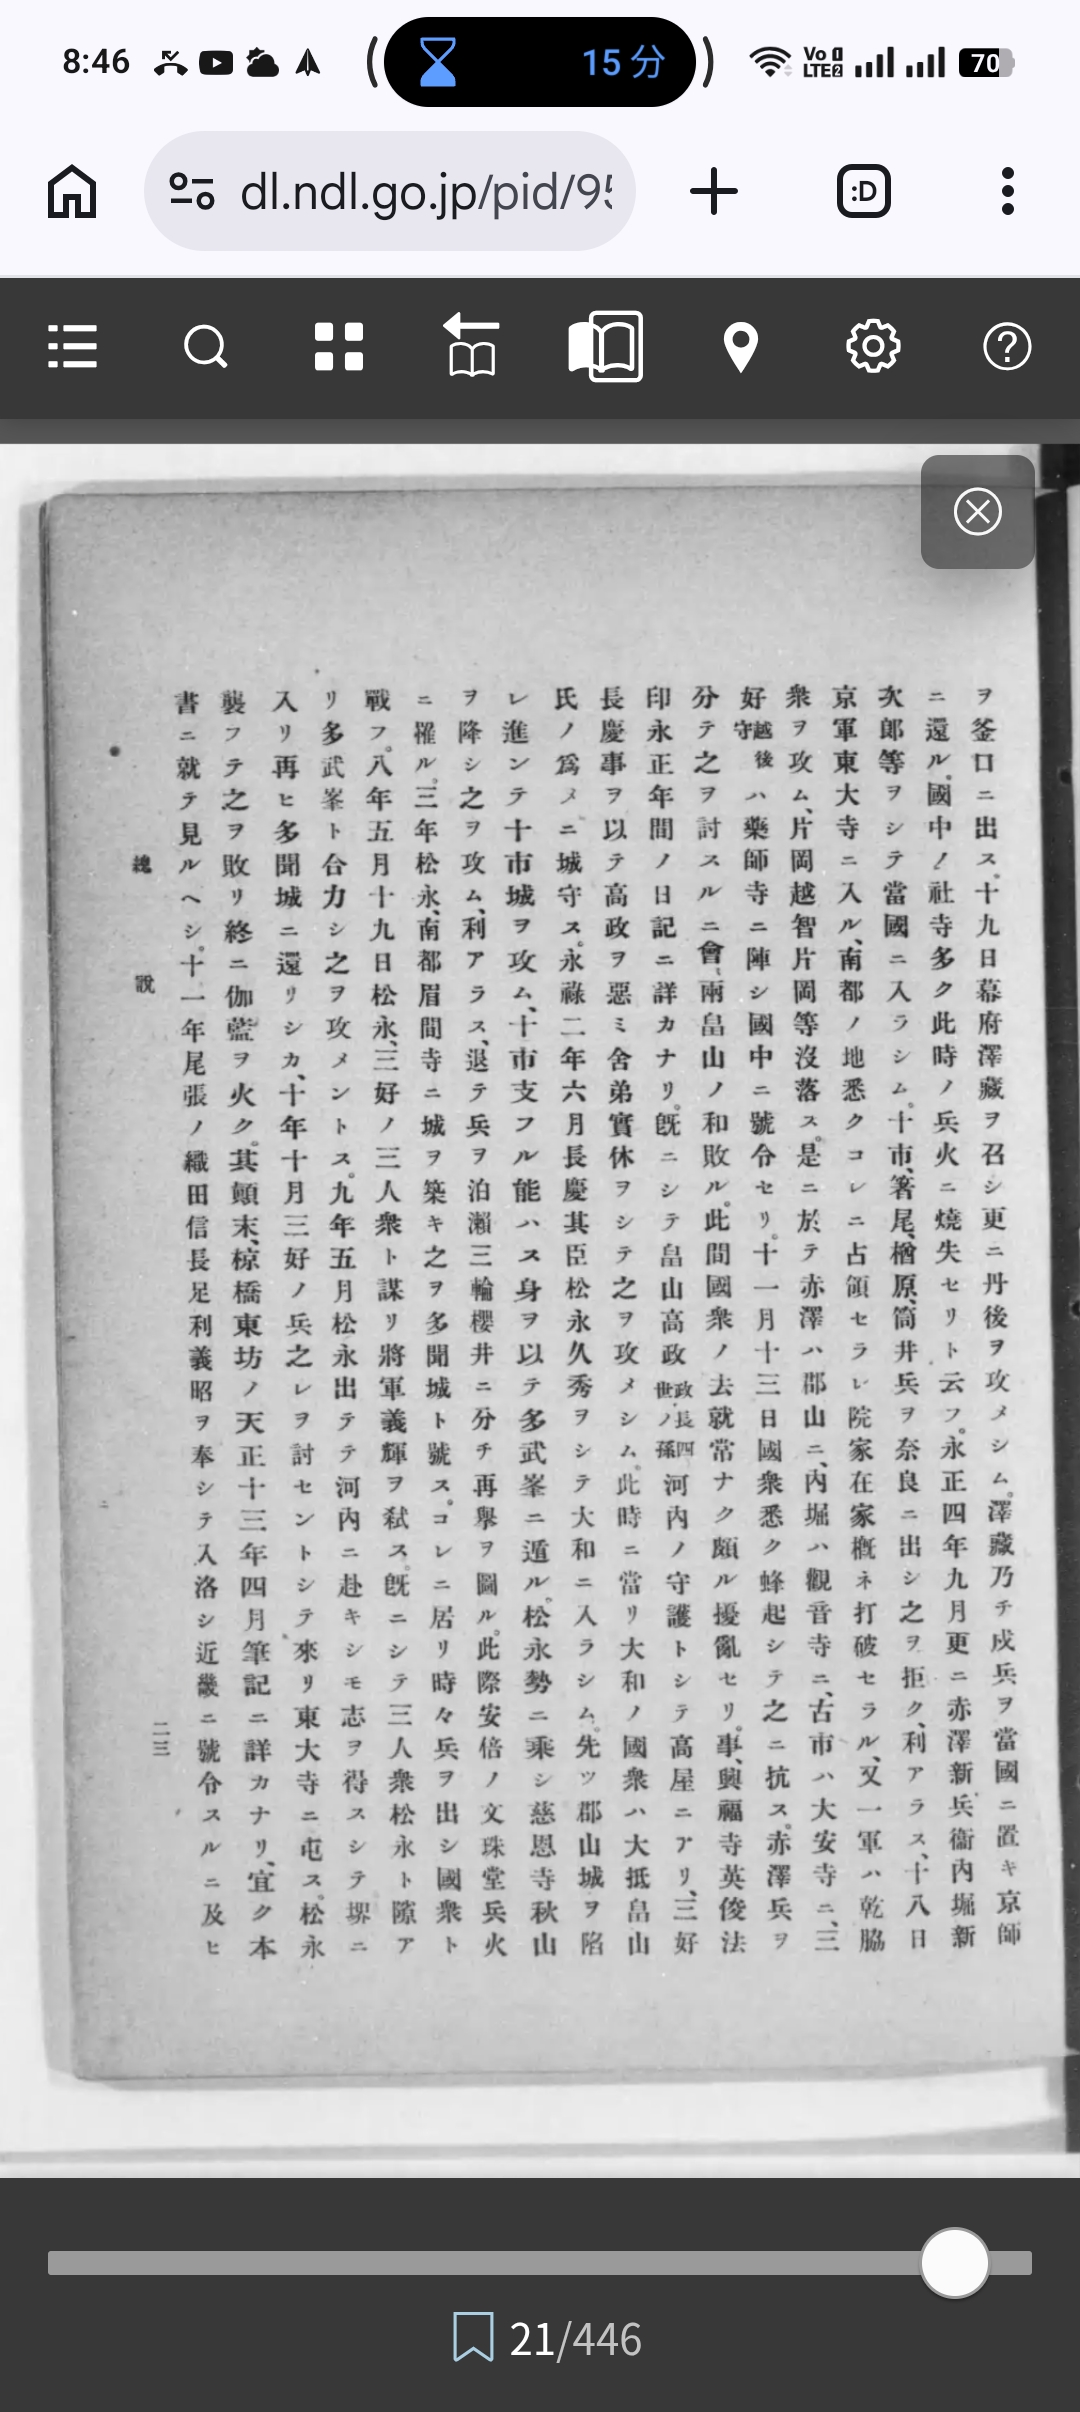 8:46
15 分
Vo 1
LTE2
70
dl.ndl.go.jp/pid/95
:D
ヲ釜口ニ出ス。十九日幕府澤藏ヲ召シ更ニ丹後ヲ攻メシム。澤藏乃チ戍兵ヲ當國ニ置キ京師
ニ還ル。國中ノ社寺多ク此時ノ兵火ニ燒失セリト云フ。永正四年九月更ニ赤澤新兵衞内堀新
次郎等ヲシテ當國ニ入ラシム。十市、箸尾、楢原、筒井兵ヲ奈良ニ出シ之ヲ拒ク、利アラス、十八日
京軍東大寺ニ入ル、南都ノ地悉クコレニ占領セラレ院家在家概ネ打破セラル、又一軍ハ乾脇
衆ヲ攻ム、片岡越智片岡等沒落ス。是ニ於テ赤澤ハ郡山ニ、内堀ハ觀音寺ニ、古市ハ大安寺ニ、三
好越後守ハ藥師寺ニ陣シ國中ニ號令セリ。十一月十三日國衆悉ク蜂起シテ之ニ抗ス。赤澤兵ヲ
分テ之ヲ討スルニ會、兩畠山ノ和敗ル。此間國衆ノ去就常ナク頗ル擾亂セリ。事、興福寺英俊法
印永正年間ノ日記ニ詳カナリ。旣ニシテ畠山高政政長四世ノ孫河内ノ守護トシテ高屋ニアリ、三好
長慶事ヲ以テ高政ヲ惡ミ舍弟實休ヲシテ之ヲ攻メシム。此時ニ當リ大和ノ國衆ハ大抵畠山
氏ノ爲メニ城守ス。永祿二年六月長慶其臣松永久秀ヲシテ大和ニ入ラシム。先ツ郡山城ヲ陷
レ進ンテ十市城ヲ攻ム、十市支フル能ハス身ヲ以テ多武峯ニ遁ル。松永勢ニ乘シ慈恩寺秋山
ヲ降シ之ヲ攻ム、利アラス、退テ兵ヲ泊瀨三輪櫻井ニ分チ再擧ヲ圖ル。此際安倍ノ文珠堂兵火
ニ罹ル。三年松永、南都眉間寺ニ城ヲ築キ之ヲ多聞城ト號ス。コレニ居リ時々兵ヲ出シ國衆ト
戰フ。八年五月十九日松永、三好ノ三人衆ト謀リ將軍義輝ヲ弑ス。旣ニシテ三人衆松永ト隙ア
リ多武峯ト合力シ之ヲ攻メントス。九年五月松永出テテ河内ニ赴キシモ志ヲ得スシテ堺ニ
入リ再ヒ多聞城ニ還リシカ、十年十月三好ノ兵之レヲ討セントシテ來リ東大寺ニ屯ス。松永
襲フテ之ヲ敗リ終ニ伽藍ヲ火ク。其顚末、椋橋東坊ノ天正十三年四月筆記ニ詳カナリ、宜ク本
書ニ就テ見ルヘシ。十一年尾張ノ織田信長足利義昭ヲ奉シテ入洛シ近畿ニ號令スルニ及ヒ
總說
二三
21/446